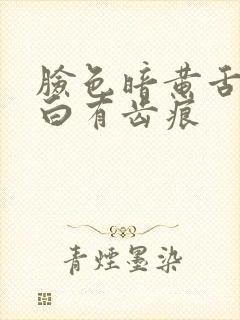 臉色暗黄舌
白有齿痕
青煙墨染